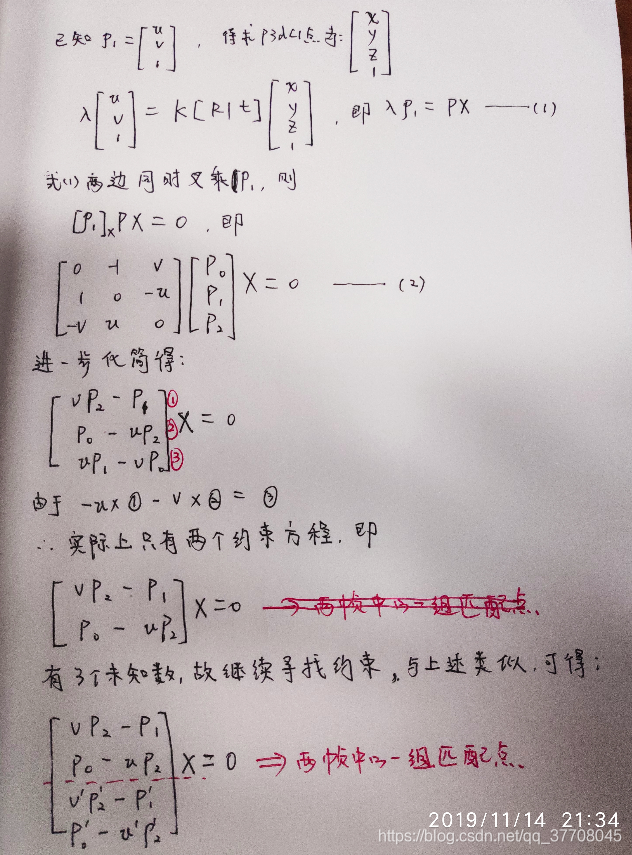 已知 P₁ = [u v 1], 待求p3d點为: [x y z 1]
λ [u v 1] = K[R|t] [x y z 1], 即 λP₁ = PX ——(1)
式(1)两边同时叉乘P₁, 则
[P₁]ₓPX = 0, 即
[0 -1 v; 1 0 -u; -v u 0] [P₀ P₁ P₂] X = 0 ——(2)
进一步化简得:
[vP₂ - P₁ ①; P₀ - uP₂ ②; uP₁ - vP₀ ③] X = 0
由于 -u×① - v×② = ③
∴ 实际上只有两个约束方程, 即
[vP₂ - P₁; P₀ - uP₂] X = 0 ⇒ 两帧中的一组匹配点.
有3个未知数, 故继续寻找约束, 与上述类似, 可得:
[vP₂ - P₁; P₀ - uP₂; v'P₂' - P₁'; P₀' - u'P₂'] X = 0 ⇒ 两帧中的一组匹配点.
2019/11/14 21:34
https://blog.csdn.net/qq_37708045